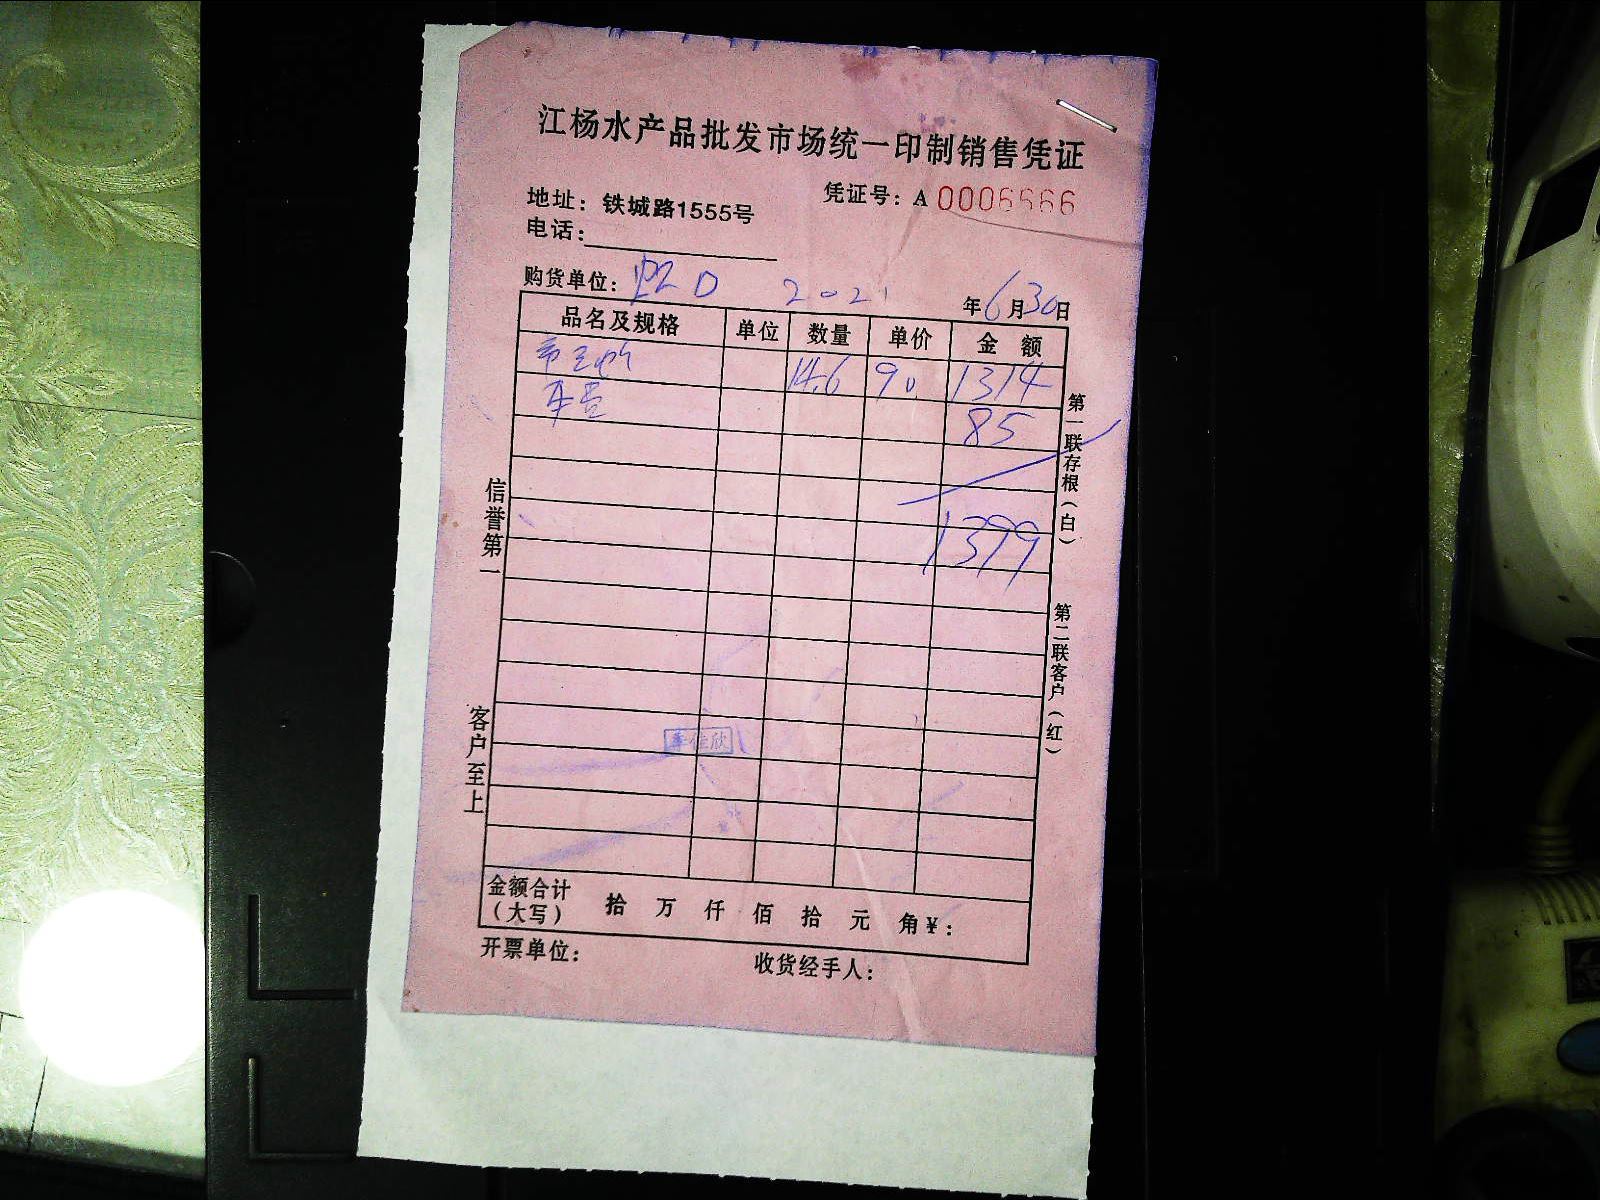 江杨水产品批发市场统一印制销售凭证
凭证号：A 0006666
地址：铁城路1555号
电话：
购货单位： 2021年6月30日
品名及规格 单位 数量 单价 金额
14.6 90. 1314
车 85
1399
信誉第一
客户至上
第一联存根（白）
第二联客户（红）
金额合计（大写） 拾 万 仟 佰 拾 元 角¥：
开票单位： 收货经手人：